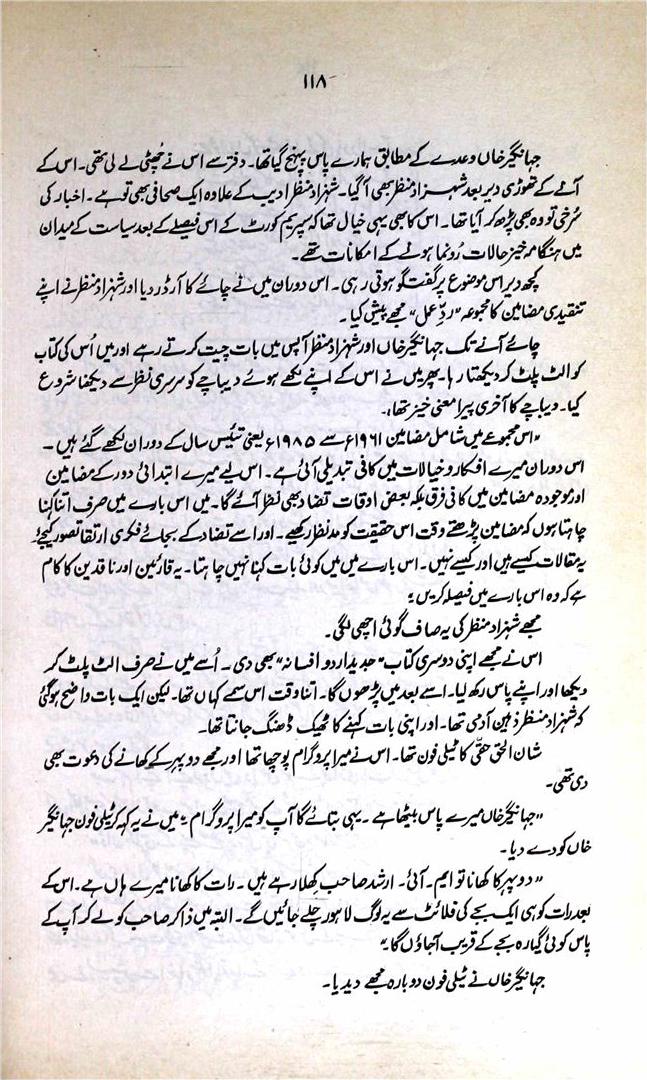 ۱۱۸
جہانگیر خاں وعدے کے مطابق ہمارے پاس پہنچ گیا تھا۔ دفتر سے اس نے چُھٹی لے لی تھی۔ اس کے
آنے کے تھوڑی دیر بعد شہزاد منظر بھی آ گیا۔ شہزاد منظر ادیب کے علاوہ ایک صحافی بھی تو ہے۔ اخبار کی
سُرخی تو وہ بھی پڑھ کر آیا تھا۔ اس کا بھی یہی خیال تھا کہ سپریم کورٹ کے اس فیصلے کے بعد سیاست کے میدان
میں ہنگامہ خیز حالات رُونما ہونے کے امکانات تھے۔
کچھ دیر اس موضوع پر گفتگو ہوتی رہی۔ اس دوران میں نے چائے کا آرڈر دیا اور شہزاد منظر نے اپنے
تنقیدی مضامین کا مجموعہ "ردِّ عمل" مجھے پیش کیا۔
چائے آنے تک جہانگیر خاں اور شہزاد منظر آپس میں بات چیت کرتے رہے اور میں اُس کی کتاب
کو الٹ پلٹ کر دیکھتا رہا۔ پھر میں نے اس کے اپنے لکھے ہوئے دیباچے کو سرسری نظر سے دیکھنا شروع
کیا۔ دیباچے کا آخری پیرا معنی خیز تھا۔
"اس مجموعے میں شامل مضامین ۱۹۶۱ء سے ۱۹۸۵ء یعنی تئیس سال کے دوران لکھے گئے ہیں۔
اس دوران میرے افکار و خیالات میں کافی تبدیلی آئی ہے۔ اس لیے میرے ابتدائی دور کے مضامین
اور موجودہ مضامین میں کافی فرق بلکہ بعض اوقات تضاد بھی نظر آئے گا۔ میں اس بارے میں صرف اتنا کہنا
چاہتا ہوں کہ مضامین پڑھتے وقت اس حقیقت کو مد نظر رکھیے۔ اور اسے تضاد کے بجائے فکری ارتقا تصور کیجئے
یہ مقالات کیسے ہیں اور کیسے نہیں۔ اس بارے میں میں کوئی بات کہنا نہیں چاہتا۔ یہ قارئین اور ناقدین کا کام
ہے کہ وہ اس بارے میں فیصلہ کریں"
مجھے شہزاد منظر کی یہ صاف گوئی اچھی لگی۔
اس نے مجھے اپنی دوسری کتاب "جدید اردو افسانہ" بھی دی۔ اُسے میں نے صرف الٹ پلٹ کر
دیکھا اور اپنے پاس رکھ لیا۔ اسے بعد میں پڑھوں گا۔ اتنا وقت اس سمے کہاں تھا۔ لیکن ایک بات واضح ہو گئی
کہ شہزاد منظر ذہین آدمی تھا۔ اور اپنی بات کہنے کا ٹھیک ڈھنگ جانتا تھا۔
شان الحق حقّی کا ٹیلی فون تھا۔ اس نے میرا پروگرام پوچھا تھا اور مجھے دوپہر کے کھانے کی دعوت بھی
دی تھی۔
"جہانگیر خاں میرے پاس بیٹھا ہے۔ یہی بتائے گا آپ کو میرا پروگرام" میں نے یہ کہہ کر ٹیلی فون جہانگیر
خاں کو دے دیا۔
"دوپہر کا کھانا تو ایم۔ آئی۔ ارشد صاحب کھلا رہے ہیں۔ رات کا کھانا میرے ہاں ہے۔ اس کے
بعد رات کو ہی ایک بجے کی فلائٹ سے یہ لوگ لاہور چلے جائیں گے۔ البتہ میں ذاکر صاحب کو لے کر آپ کے
پاس کوئی گیارہ بجے کے قریب آجاؤں گا"
جہانگیر خاں نے ٹیلی فون دوبارہ مجھے دیدیا۔